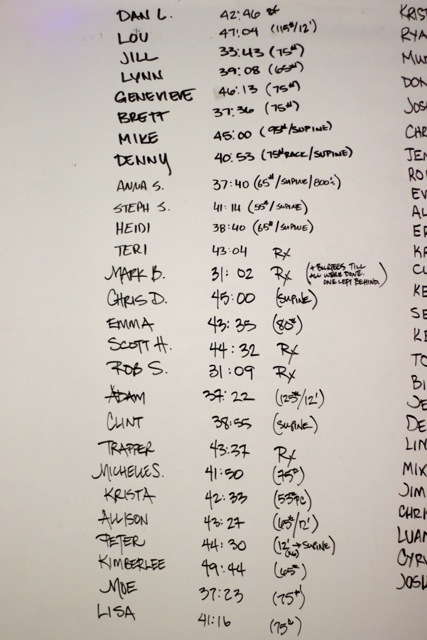 DAN L. 42:46
LOU 47:04 (115#/12')
JILL 33:43 (75#)
LYNN 39:08 (65#)
GENEVIEVE 46:13 (75#)
BRETT 37:36 (75#)
MIKE 45:00 (95#/SUPINE)
DENNY 40:53 (75# RACK/SUPINE)
ANNA S. 37:40 (65#/SUPINE/800's)
STEPH S. 41:14 (55#/SUPINE)
HEIDI 38:40 (65#/SUPINE)
TERI 43:04 Rx
MARK B. 31:02 Rx (+ BURPEES TILL
ALL WERE DONE.
ONE LEFT BEHIND)
CHRIS D. 45:00 (SUPINE)
EMMA 43:35 (80#)
SCOTT H. 44:32 Rx
ROB S. 31:09 Rx
ADAM 37:22 (125#/12')
CLINT 38:55 (SUPINE)
TRAPPER 43:37 Rx
MICHELLE S. 41:50 (75#)
KRISTA 42:33
ALLISON 43:27 (65#/12')
PETER 44:30 (12' → SUPINE)
KIMBERLEE 49:44 (65#)
MOE 37:23 (75#)
LISA 41:16 (75#)
KRIST
RYA
MU
DON
JOS
CHR
JEN
RO
EV
AL
ER
KR
CL
KE
SE
KE
TO
BI
JE
DE
LIN
MIK
JIM
CHRI
LUAN
CYRU
JOSH